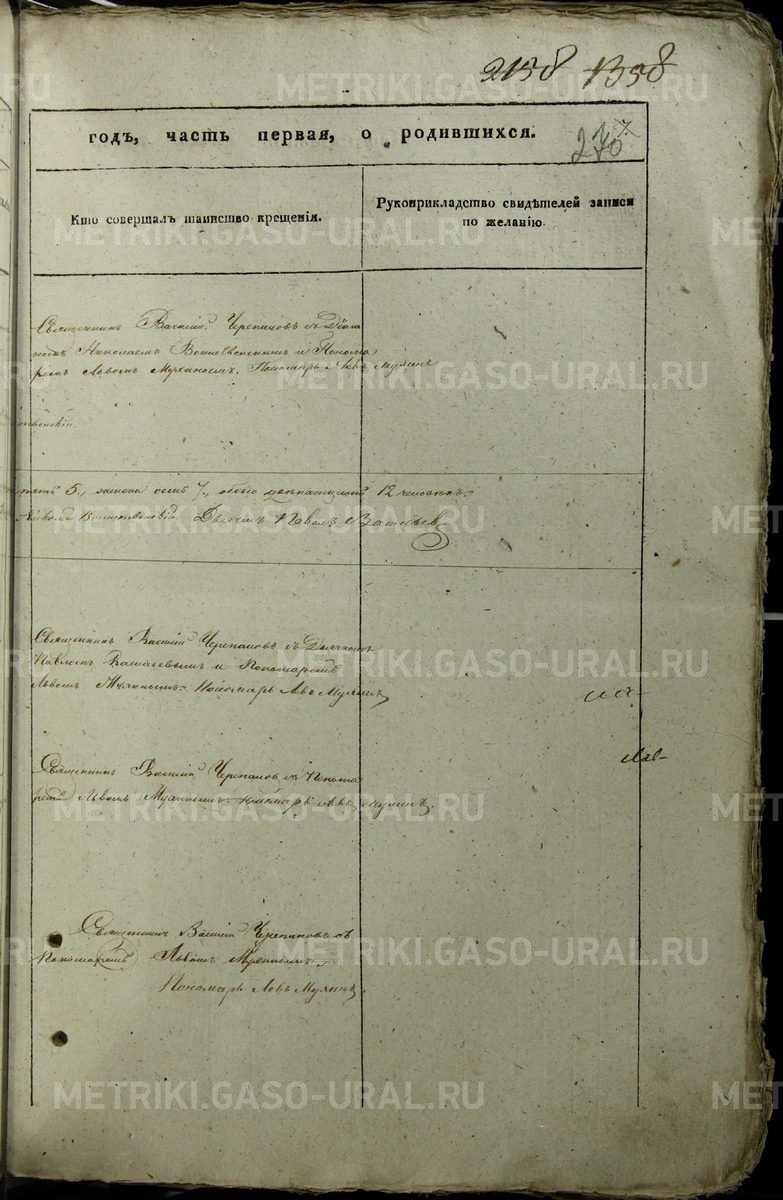 2158 1358
270
годъ, часть первая, о родившихся.
Кто совершалъ таинство крещенія.
Рукоприкладство свидѣтелей записи
по желанію.
Священникъ Василій Черепановъ съ Діако
номъ Николаемъ и Понома
ремъ Львомъ Мухинымъ. Пономарь Левъ Мухинъ
пять 5., женска семь 7., обоего двенатцать 12 человѣкъ.
Николай Дьячекъ Павелъ Васильевъ
Священникъ Василій Черепановъ съ Дьячкомъ
Павломъ Васильевымъ и Пономаремъ
Львомъ Мухинымъ. Пономарь Левъ Мухинъ
Священникъ Василій Черепановъ съ Понома
ремъ Львомъ Мухинымъ. Пономарь Левъ Мухинъ.
Священникъ Василій Черепановъ съ
Пономаремъ Львомъ Мухинымъ.
Пономарь Левъ Мухинъ.
METRIKI.GASO-URAL.RU